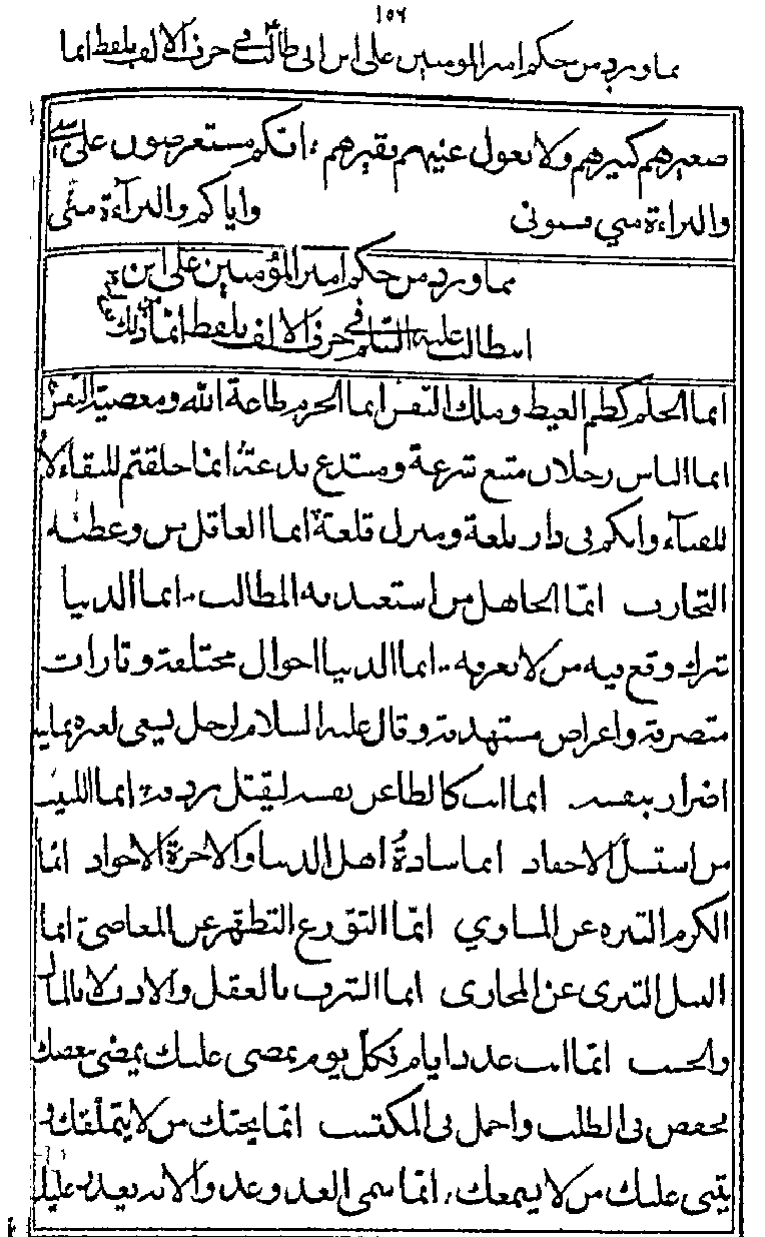 ١٥٦
مما ورد من حكم امير المومنين على ابن ابى طالب فى حرف الالف بلفظ انما
صغيرهم كبيرهم ولا يعول غنيهم فقيرهم انكم ستعرضون على سبى
والبراءة منى فسبونى واياكم والبراءة منى
مما ورد من حكم امير المؤمنين على ابن
ابيطالب عليه السلم فى حرف الالف بلفظ انما
انما الحلم كظم الغيظ وملك النفس انما الحزم طاعة الله ومعصية النفس
انما الناس رجلان متبع شرعة ومبتدع بدعة انما خلقتم للبقاء لا
للفناء وانكم فى دار بلغة ومنزل قلعة انما العاقل من وعظته
التجارب انما الجاهل من استعبدته المطالب انما الدنيا
شرك وقع فيه من لا يعرفه انما الدنيا احوال مختلفة وتارات
متصرفة واغراض مستهدفة وقال عليه السلام لرجل يسعى لغيره بما فيه
اضرار بنفسه انما انت كالطاعن نفسه ليقتل ردفه انما اللبيب
من استسل الاحقاد انما سادة اهل الدنيا والاخرة الاجواد انما
الكرم التنزه عن المساوي انما التورع التطهر عن المعاصى انما
النبل التبرى عن المخازى انما الشرف بالعقل والادب لا بالمال
والحسب انما انت عدد ايام فكل يوم يمضى عليك يمضى ببعضك
فخفض فى الطلب واجمل فى المكتسب انما يحبك من لا يتملقك
يثنى عليك من لا يسمعك انما سمى العدو عدوا لانه يعدو عليك